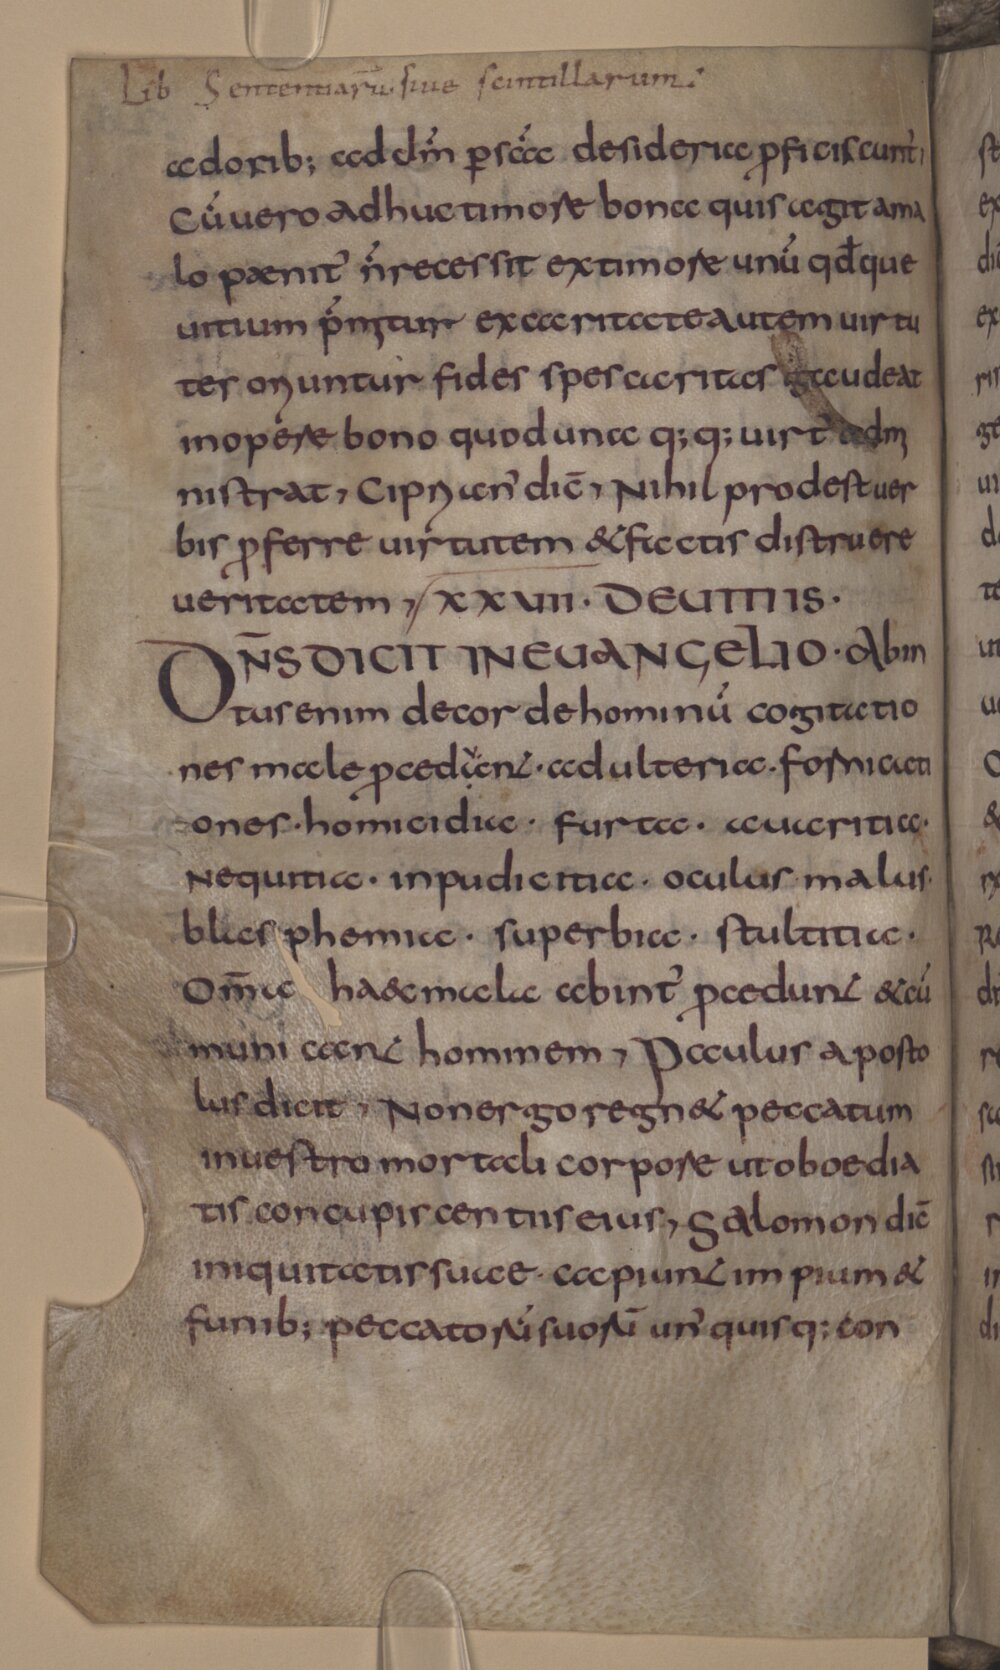 Lib Sententiarū. siue scintillarum.
adorib; ad dm̄ p̱ scā desideria ꝓficiscunt̄,
Cū uero adhuc timore bona quis agit a ma
lo pænit̄ n̄ recessit ex timore unū qđque
uitium p̄mitur ex caritate autem uirtu
tes oriuntur fides spes caritas gaudeat
in opere bono quod una q;q; uirt̄ admi
nistrat, Ciprian̄ dic̄, Nihil prodest uer
bis ꝓferre uirtutem & factis distruere
ueritatem, XXVIII. DE UITIIS.
DN̄S DICIT IN EUANGELIO. Ab in
tus enim de corde hominū cogitatio
nes male ꝓcedunt. adulteria. fornicati
ones. homicidia. furta. auaritia.
Nequitia. inpudicitia. oculus malus.
blasphemia. superbia. stultitia.
Om̄a haec mala ab int̄ ꝓcedunt & cū
muni cant hominem, Paulus aposto
lus dicit, Non ergo regn& peccatum
in uestro mortali corpore ut oboedia
tis concupiscentiis eius, Salomon dic̄
iniquitatis suae capiunt impium &
funib; peccatorū suorū un̄ quisq; con